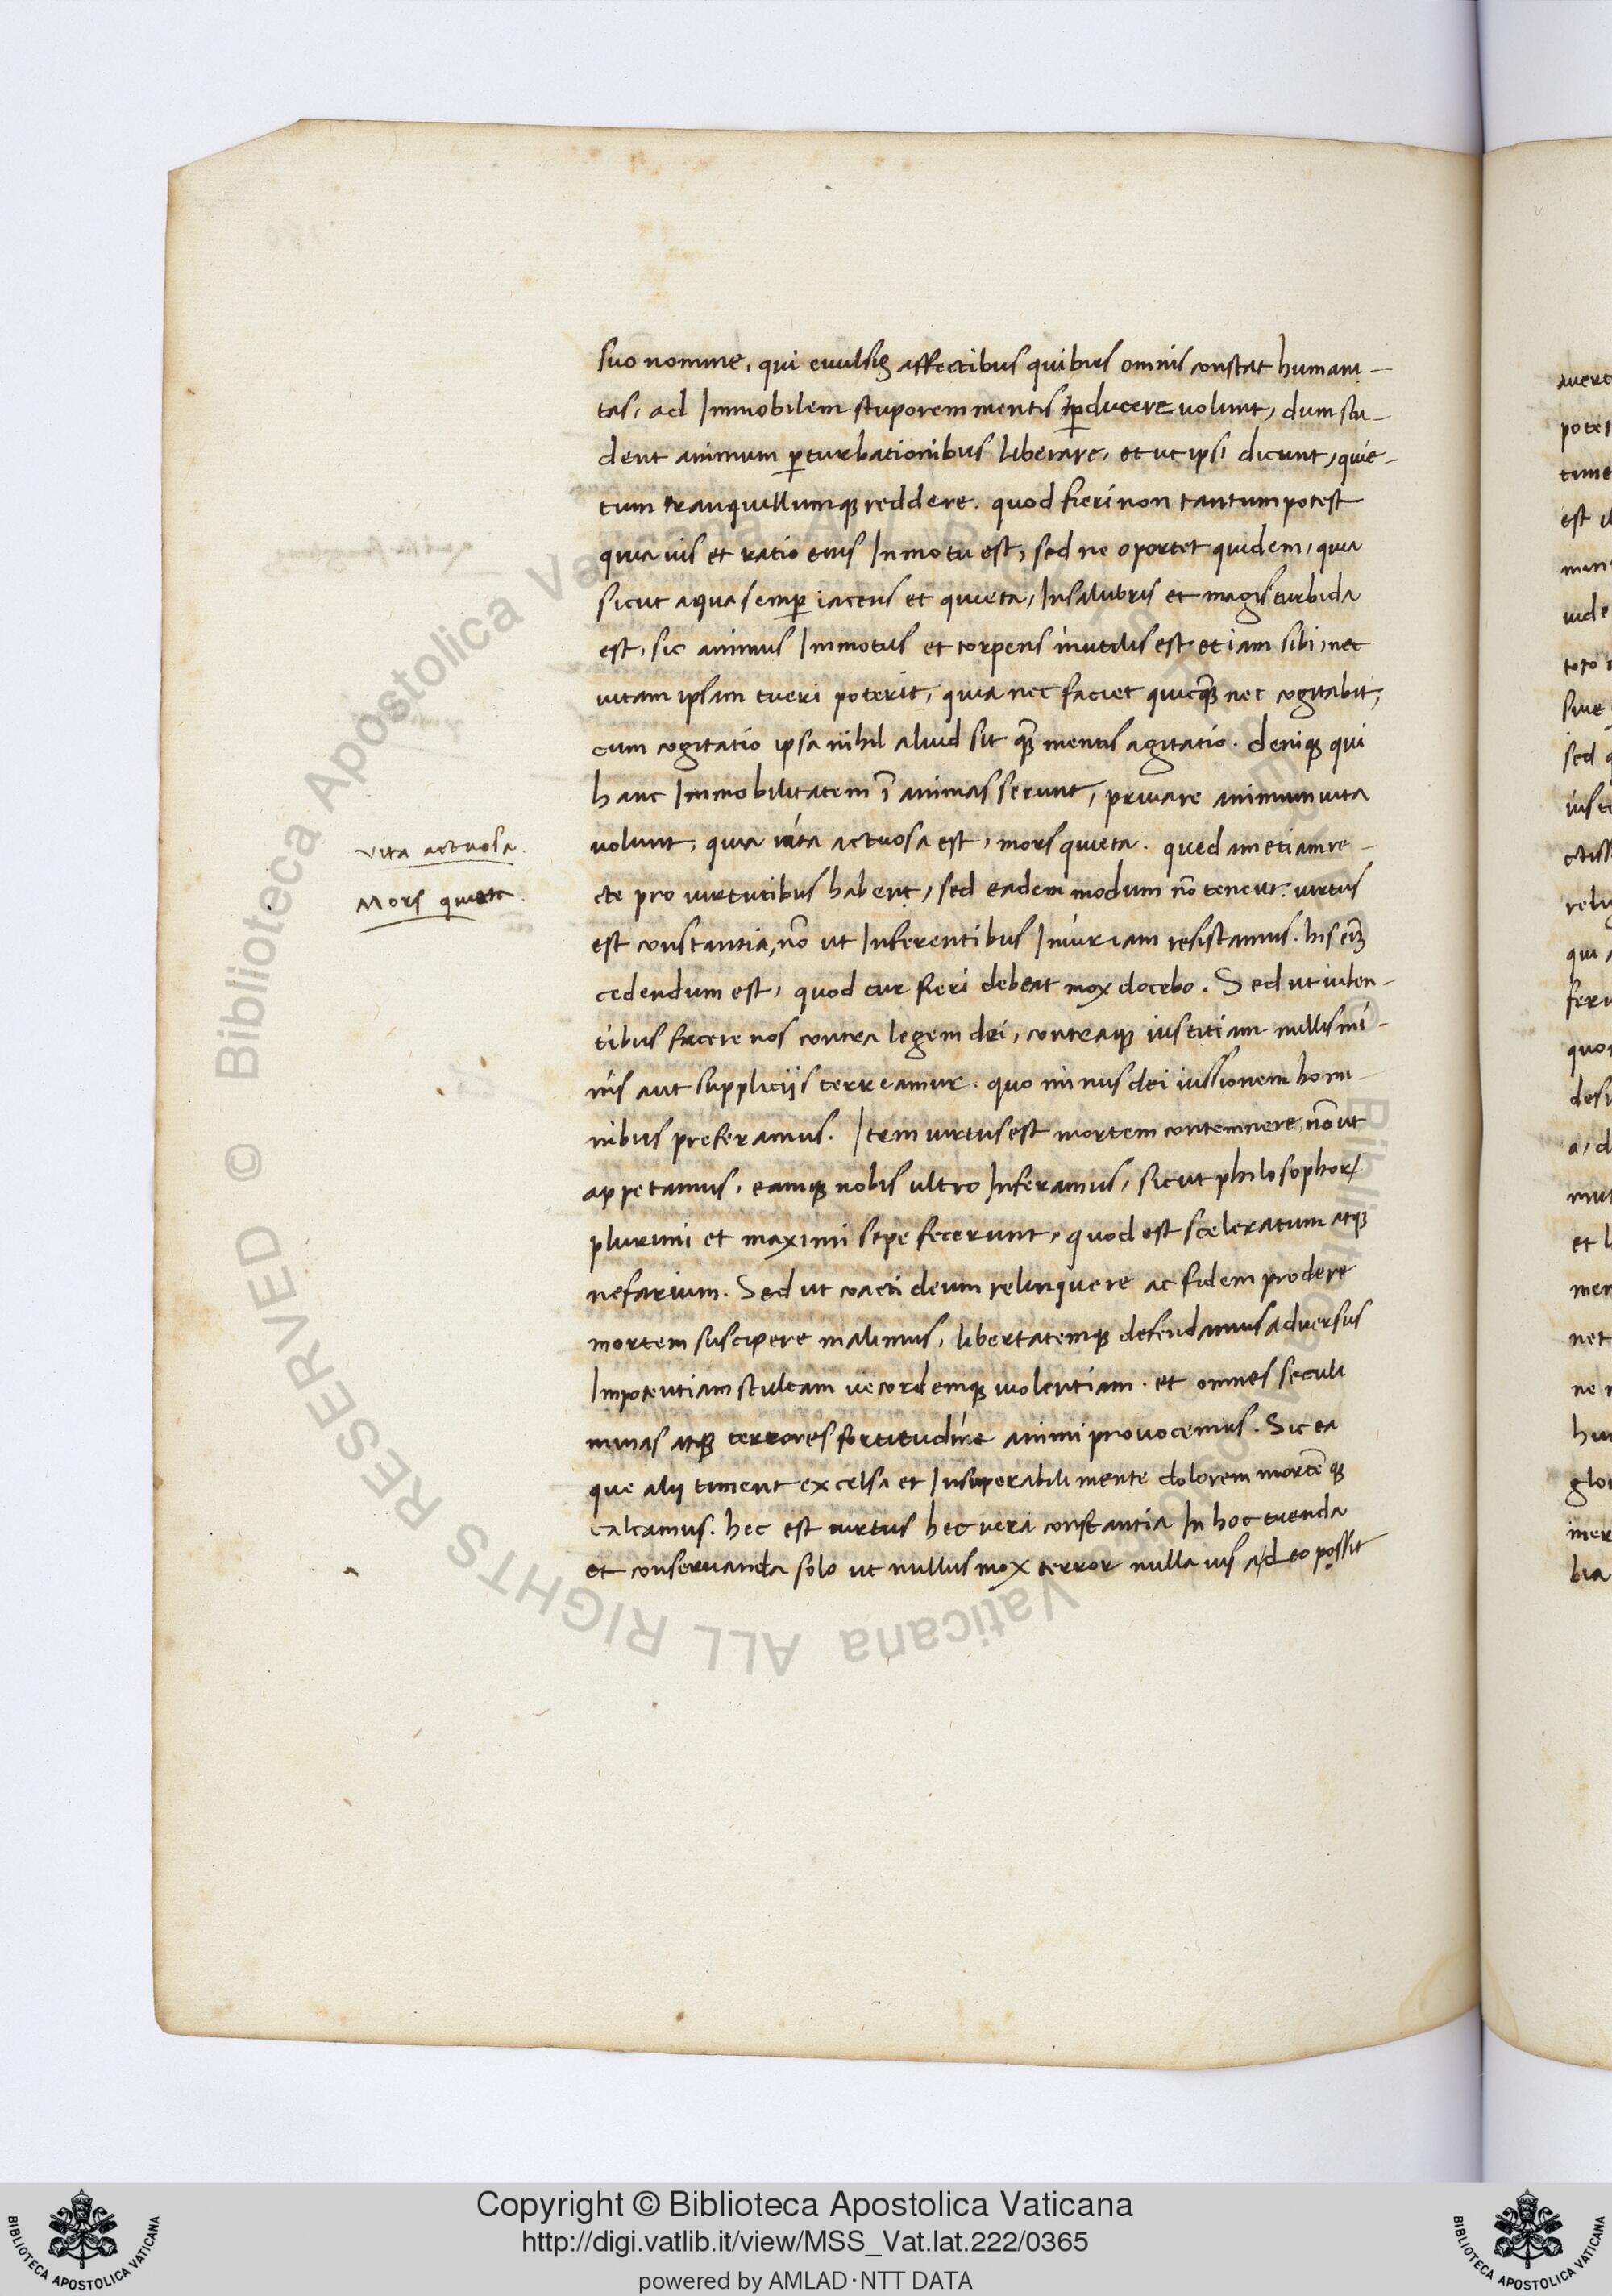 suo nomine, qui euulsis affectibus quibus omnis constat humani-
tas, ad Immobilem stuporem mentis p̱ducere uolunt, dum stu-
dent animum p̱turbationibus liberare, et ut ipsi dicunt, quie-
tum tranquillumqꝫ reddere. quod fieri non tantum potest
quia uis et ratio eius In motu est, sed ne oportet quidem, quia
sicut aqua semp̱ iacens et quieta, Insalubris et magis turbida
est, sic animus Immotus et torpens inutilis est etiam sibi, nec
uitam ipsam tueri poterit, quia nec faciet quicq̃ nec cogitabit,
cum cogitatio ipsa nihil aliud sit q̃ mentis agitatio. deniqꝫ qui
hanc Immobilitatem ī animas serunt, priuare animum uita
uolunt, quia uita actuosa est, mors quieta. quedam etiam re-
cte pro uirtutibus habent, sed eadem modum nō tenent. uirtus
est constantia, nō ut Inferentibus Iniuriam resistamus. his eiꝫ
cedendum est, quod cur fieri debeat mox docebo. Sed ut iuben-
tibus facere nos contra legem dei, contraqꝫ iustitiam nullis mi-
nis aut suppliciis terreamur. quo minus dei iussionem homi-
nibus preferamus. Item uirtus est mortem contemnere, nō ut
appetamus, eamqꝫ nobis ultro Inferamus, sicut philosophoꝝ
plurimi et maximi sepe fecerunt, quod est sceleratum atqꝫ
nefarium. Sed ut coacti deum relinquere ac fidem prodere
mortem suscipere malimus, libertatemqꝫ defendamus aduersus
Impotentiam stultam uecordemqꝫ uiolentiam. et omnes seculi
minas atqꝫ terrores fortitudine animi prouocemus. Sic ea
que alii timent excelsa et Insuperabili mente dolorem mortēqꝫ
calcamus. hec est uirtus hec uera constantia In hoc tuenda
et conseruanda solo ut nullus mox terror nulla uis a deo possit
vita actuosa.
Mors quieta.
Copyright © Biblioteca Apostolica Vaticana
http://digi.vatlib.it/view/MSS_Vat.lat.222/0365
powered by AMLAD·NTT DATA
© Biblioteca Apostolica Vaticana ALL RIGHTS RESERVED
BIBLIOTECA APOSTOLICA VATICANA
BIBLIOTECA APOSTOLICA VATICANA